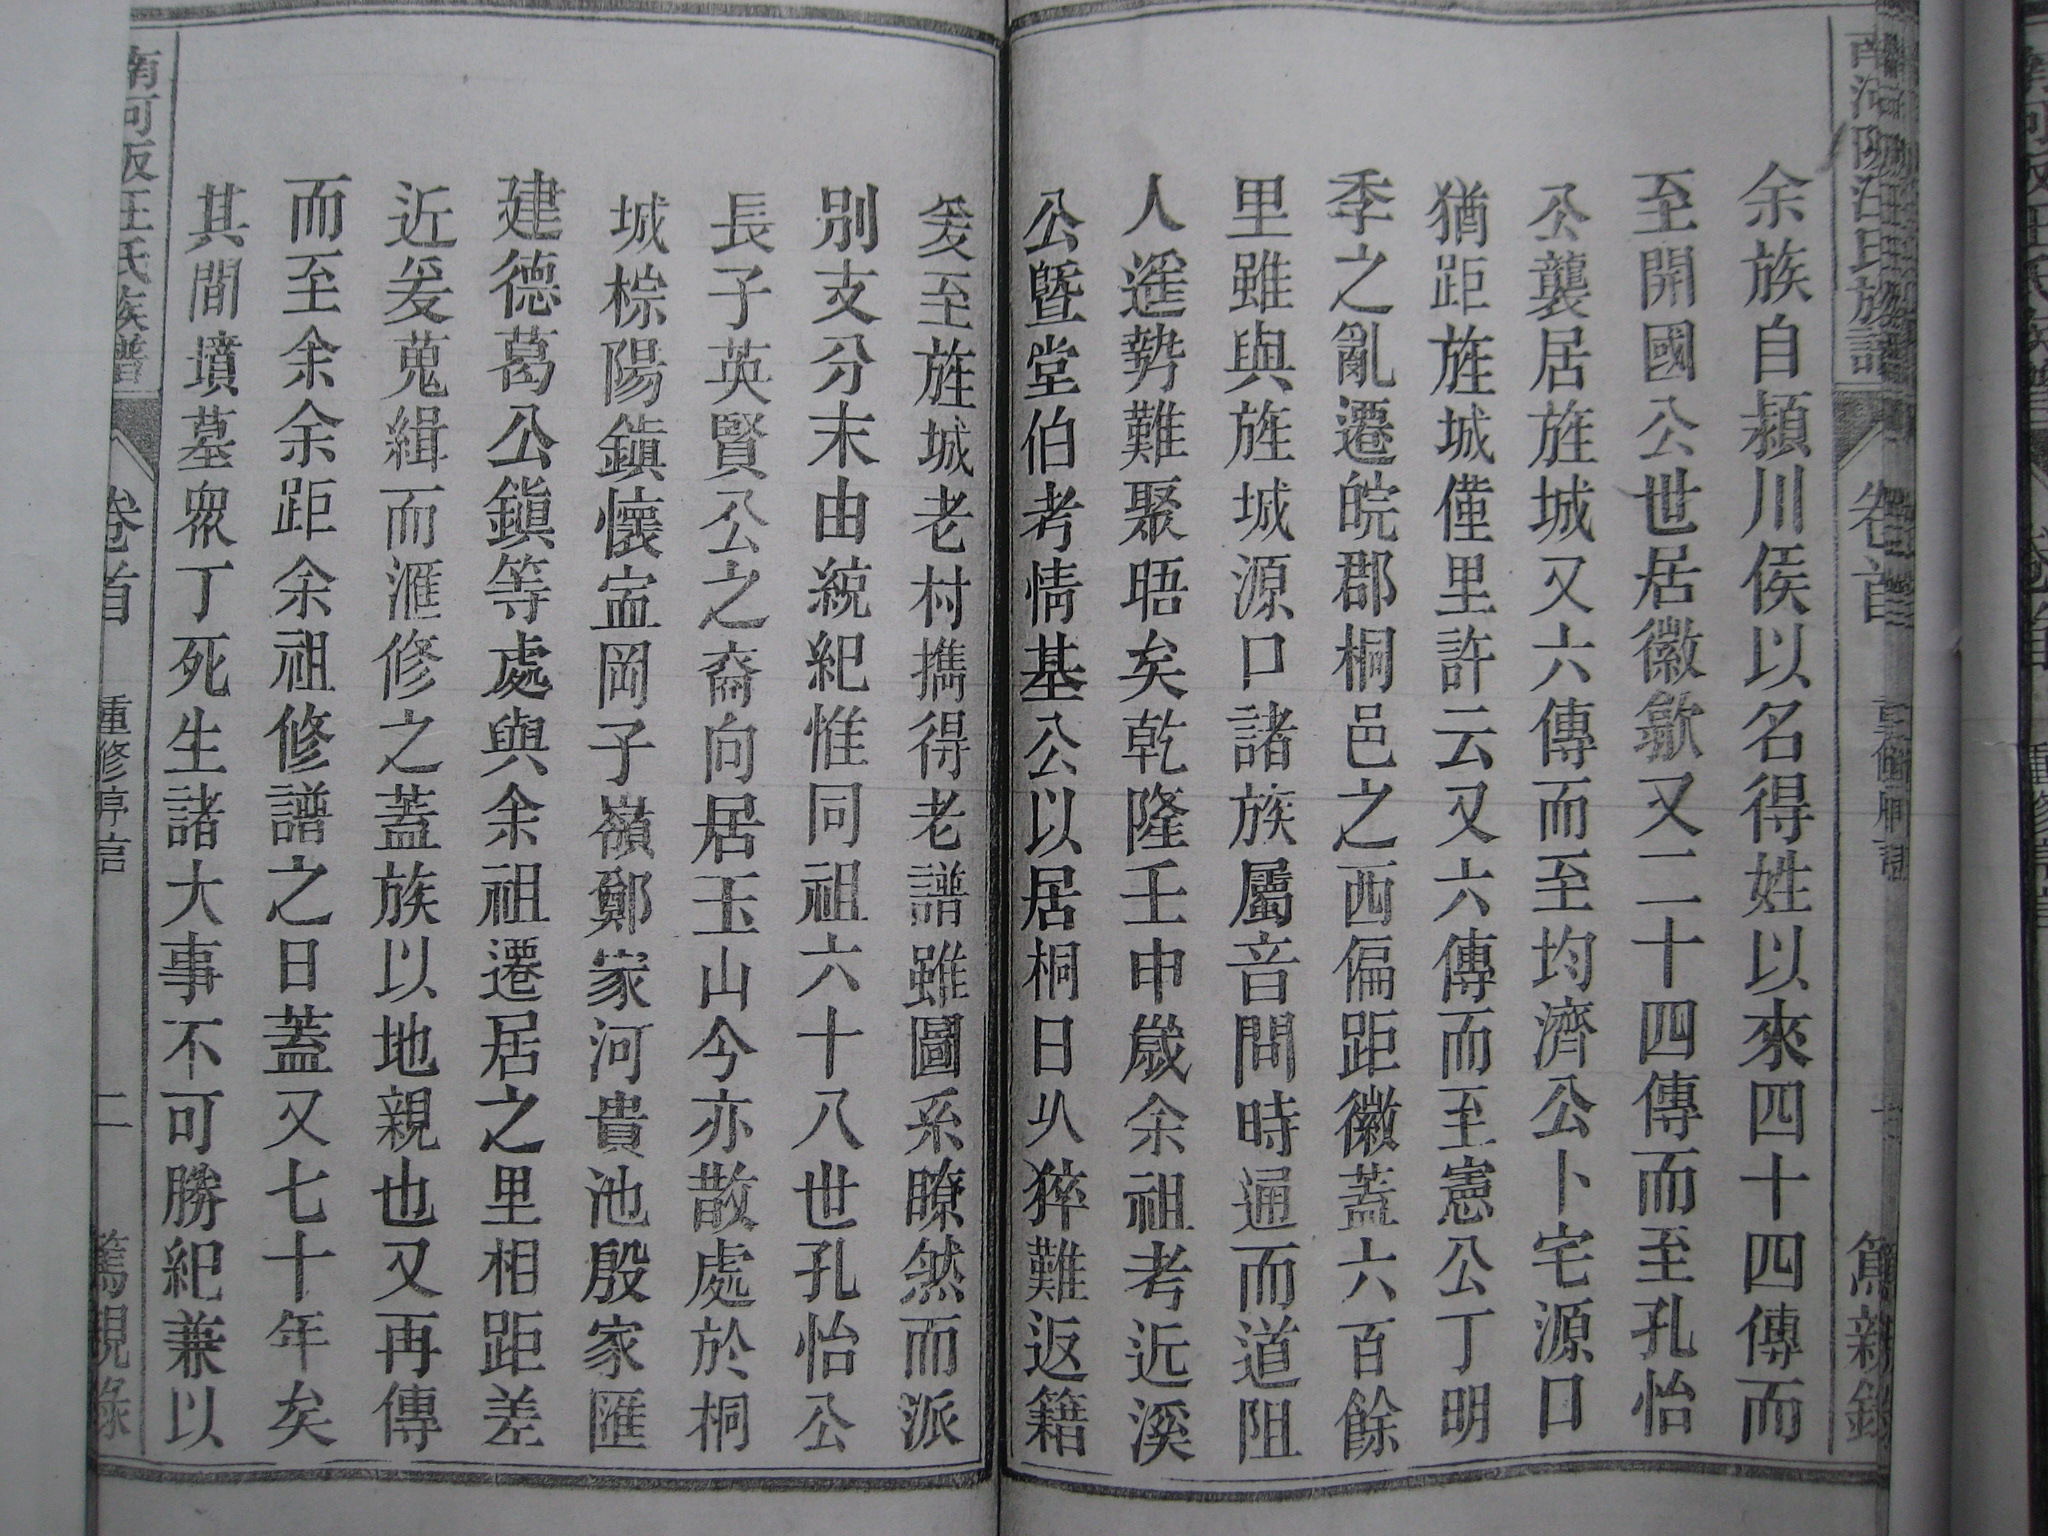 余族自潁川侯以名得姓以來四十四傳而
至開國公世居徽歙又二十四傳而至孔怡
公襲居旌城又六傳而至均濟公卜宅源口
猶距旌城僅里許云又六傳而至憲公丁明
季之亂遷皖郡桐邑之西偏距徽蓋六百餘
里雖與旌城源口諸族屬音問時通而道阻
人遥勢難聚晤矣乾隆壬申歲余祖考近溪
公曁堂伯考情基公以居桐日乆猝難返籍
爰至旌城老村攜得老譜雖圖系瞭然而派
別支分末由統紀惟同祖六十八世孔怡公
長子英賢公之裔向居玉山今亦散處於桐
城棕陽鎮懷寍岡子嶺鄭家河貴池殷家匯
建德葛公鎭等處與余祖遷居之里相距差
近爰蒐緝而滙修之蓋族以地親也又再傳
而至余余距余祖修譜之日蓋又七十年矣
其間墳墓衆丁死生諸大事不可勝紀兼以
南河阪汪氏族譜 卷首 重修序言 二 篤親錄